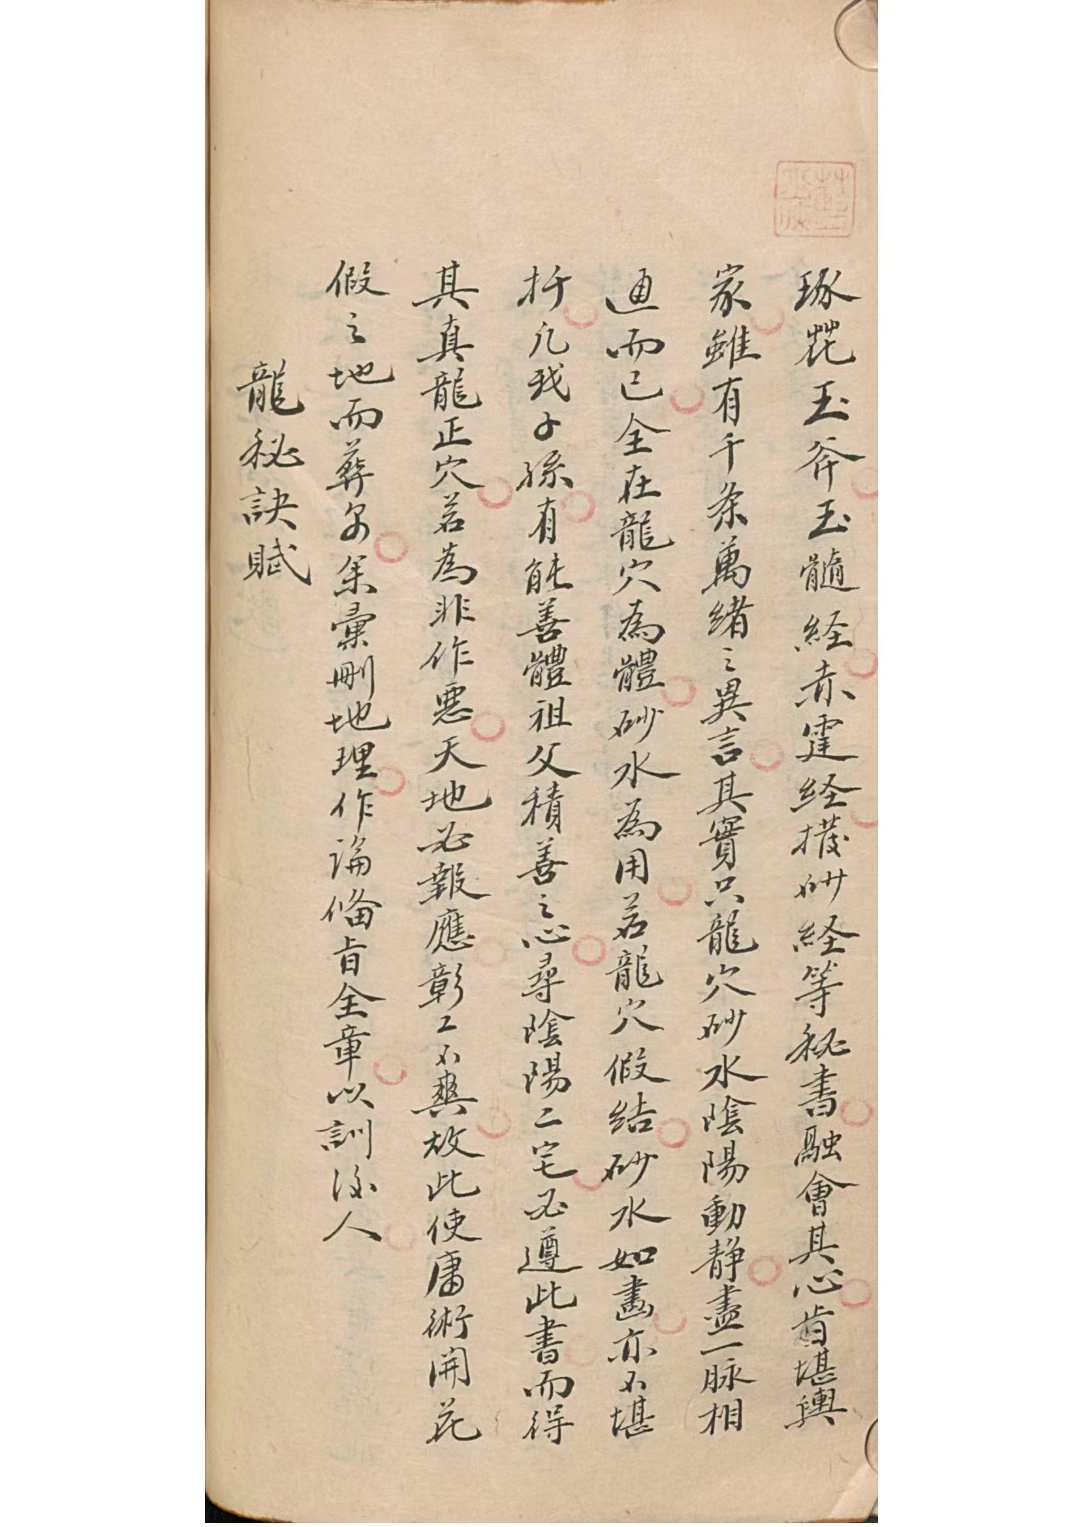 琢茈玉斧玉髓経赤霆経撥砂経等秘書融會其心肯堪輿
家雖有千条萬緒之異言其實只龍穴砂水陰陽動静盡一脉相
通而已全在龍穴為體砂水為用若龍穴假结砂水如畵亦不堪
扦凡我子孫有能善體祖父積善之心尋陰陽二宅必遵此書而得
其真龍正穴若為非作悪天地必報應彰〻不爽故此使庸術開花
假之地而葬尔余彙刪地理作論脩旨全章以訓後人
龍秘訣賦